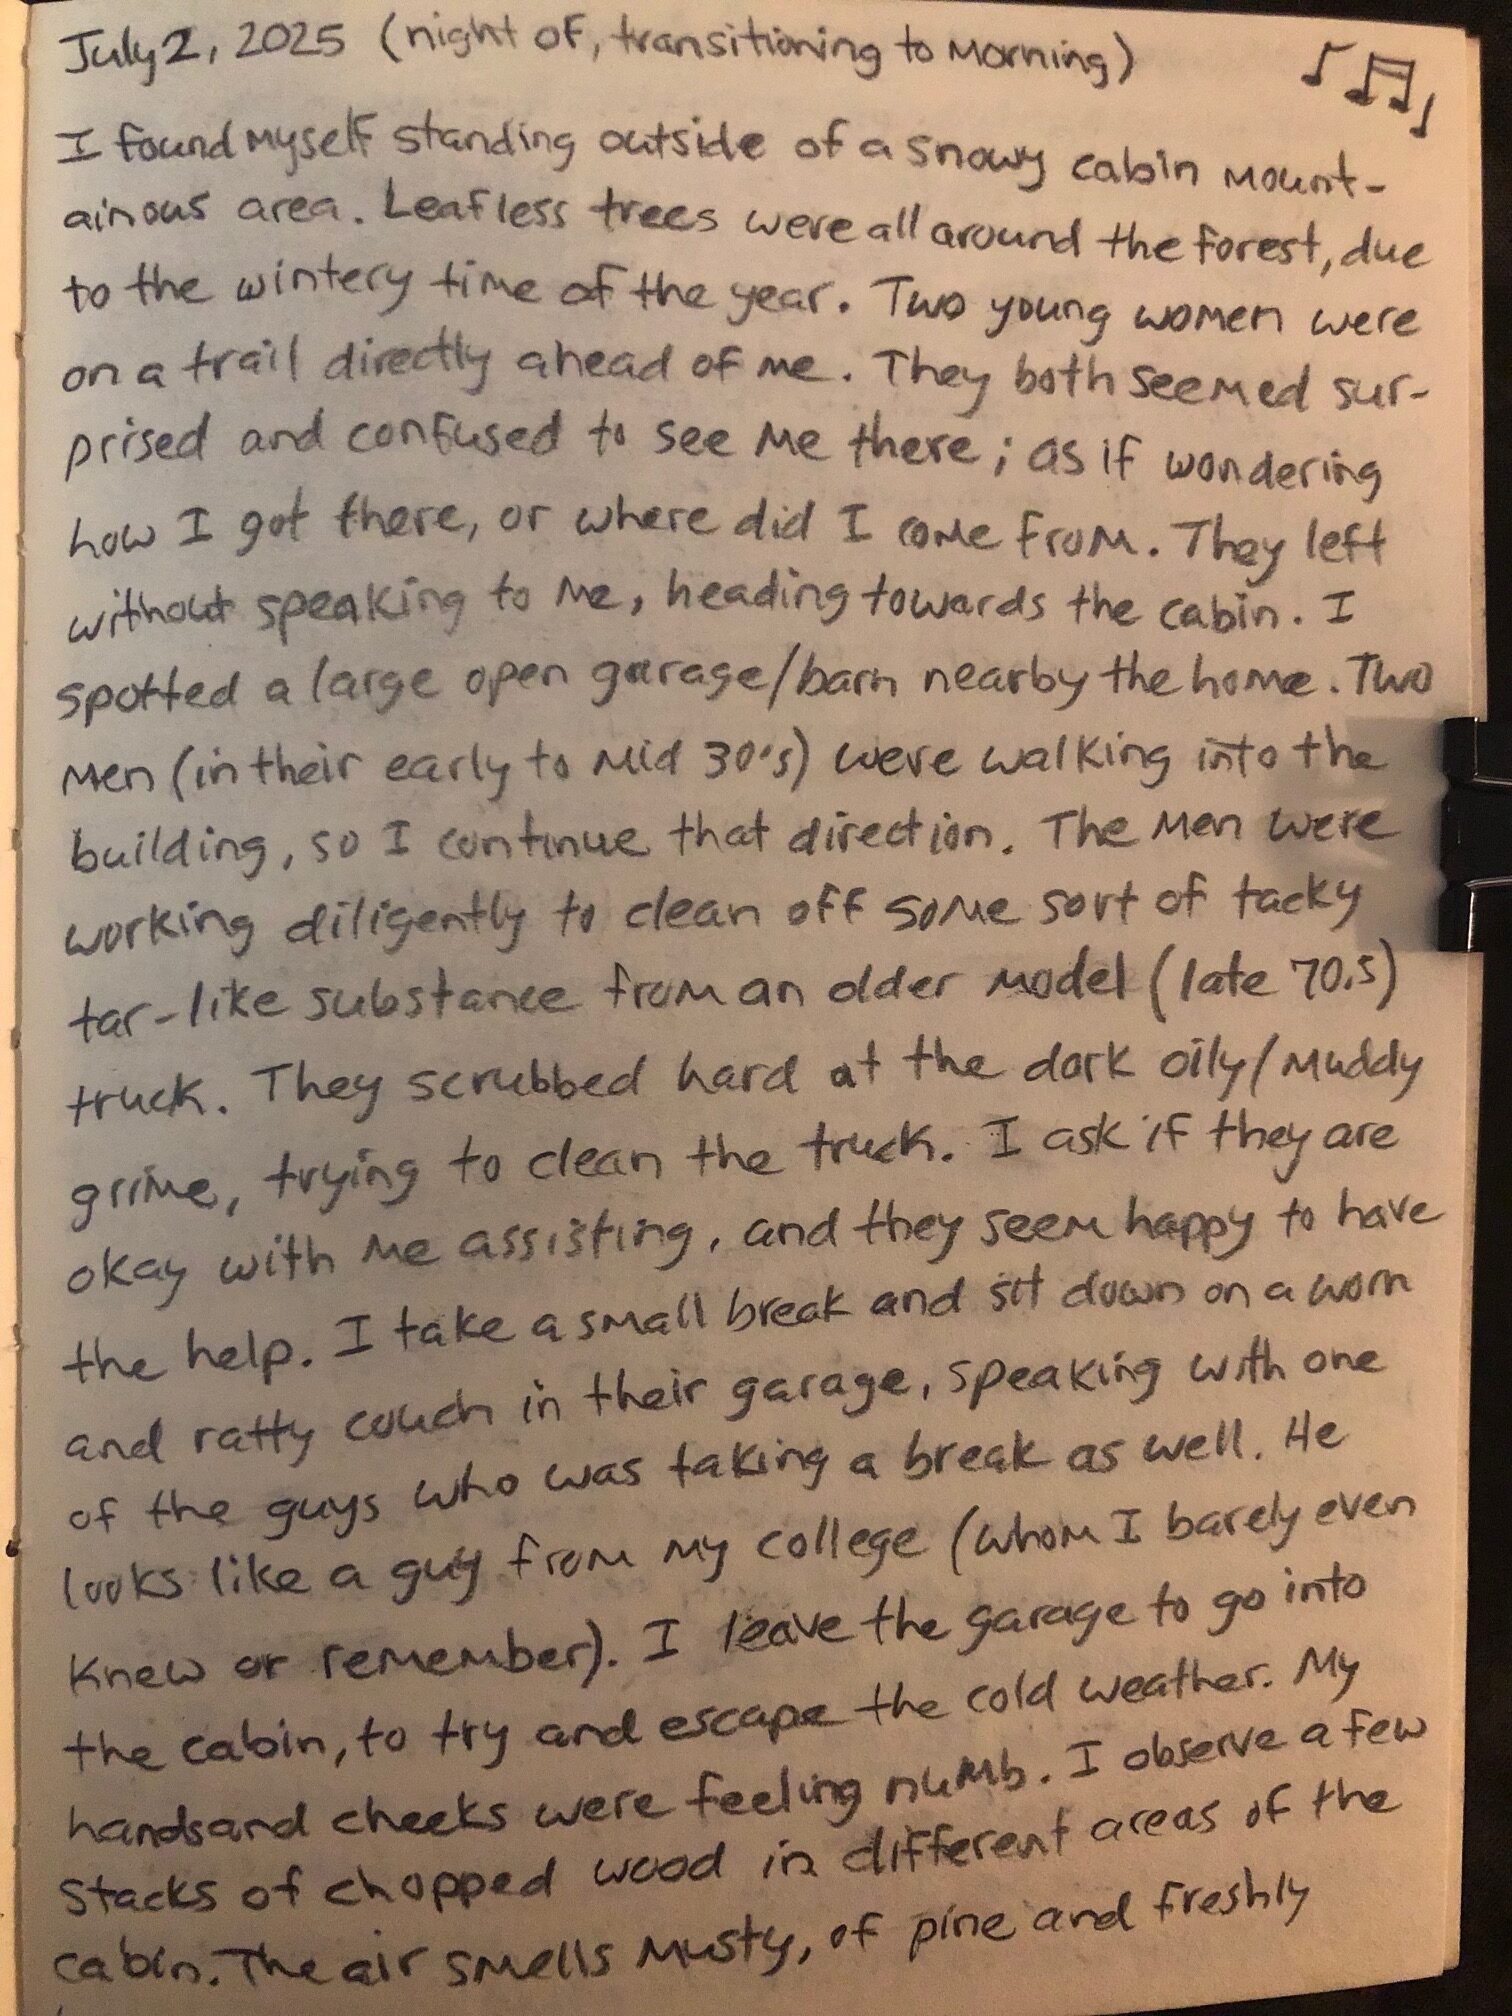 July 2, 2025 (night of, transitioning to morning)
I found myself standing outside of a snowy cabin mount-
ainous area. Leafless trees were all around the forest, due
to the wintery time of the year. Two young women were
on a trail directly ahead of me. They both seemed sur-
prised and confused to see me there; as if wondering
how I got there, or where did I come from. They left
without speaking to me, heading towards the cabin. I
spotted a large open garage/barn nearby the home. Two
men (in their early to mid 30's) were walking into the
building, so I continue that direction. The men were
working diligently to clean off some sort of tacky
tar-like substance from an older model (late 70's)
truck. They scrubbed hard at the dark oily/muddy
grime, trying to clean the truck. I ask if they are
okay with me assisting, and they seem happy to have
the help. I take a small break and sit down on a worn
and ratty couch in their garage, speaking with one
of the guys who was taking a break as well. He
looks like a guy from my college (whom I barely even
knew or remember). I leave the garage to go into
the cabin, to try and escape the cold weather. My
hands and cheeks were feeling numb. I observe a few
stacks of chopped wood in different areas of the
cabin. The air smells musty, of pine and freshly